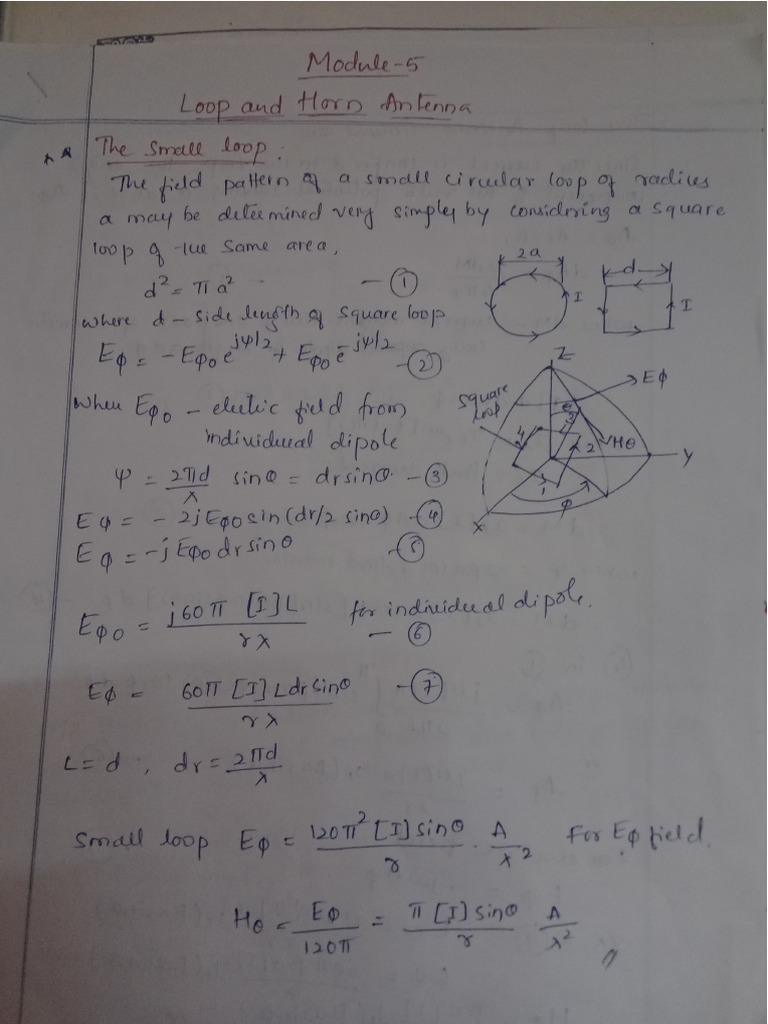 Module-5
Loop and Horn Antenna
The small loop:
The field pattern of a small circular loop of radius
a may be determined very simply by considering a square
loop of the same area,
d² = πa² — ①
2a
d
I
I
where d - side length of square loop
Eφ = -Eφ₀ e^{jψ/2} + Eφ₀ e^{-jψ/2} — ②
Where Eφ₀ - electric field from
individual dipole
Z
Eφ
Square
loop
θ
Hθ
Y
X
φ
1
2
3
4
ψ = 2πd/λ sinθ = dr sinθ — ③
Eφ = - 2j Eφ₀ sin(dr/2 sinθ) — ④
Eφ = -j Eφ₀ dr sinθ — ⑤
Eφ₀ = j60π [I] L / rλ for individual dipole. — ⑥
Eφ = 60π [I] L dr sinθ / rλ — ⑦
L = d, dr = 2πd/λ
Small loop Eφ = 120π² [I] sinθ / r . A/λ² For Eφ field.
Hθ = Eφ/120π = π [I] sinθ / r . A/λ²